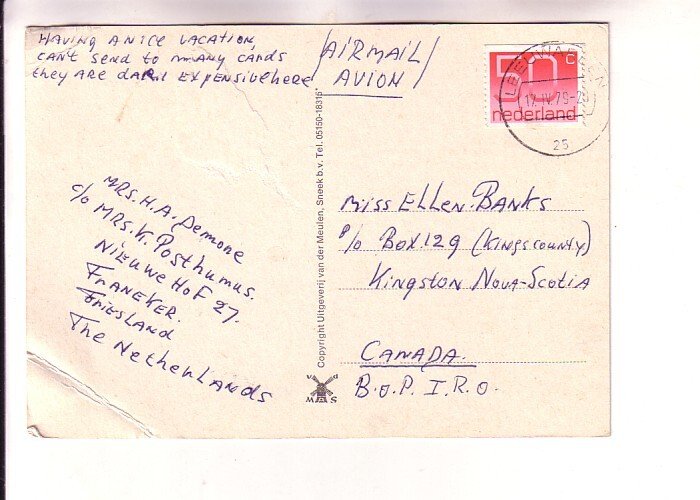 HAVING A NICE VACATION,
CAN'T SEND TO MANY CARDS
they ARE EXPENSIVE here
AIRMAIL
AVION
50 C
nederland
LEEUWARDEN
17.IV.79-
25
MRS. H.A. Demone
c/o MRS. K. Posthumus.
NIEUWE HOF 27.
FRANEKER.
FRIESLAND
The NetheRLANDS
Copyright Uitgeverij van der Meulen, Sneek b.v. Tel. 05150-18315*
MISS ELLEN BANKS
P/o BOX.129 (KINGS COUNTY)
KINGSTON NOVA-SCOTIA
CANADA.
B.O.P. I.R.O.
v d
M S